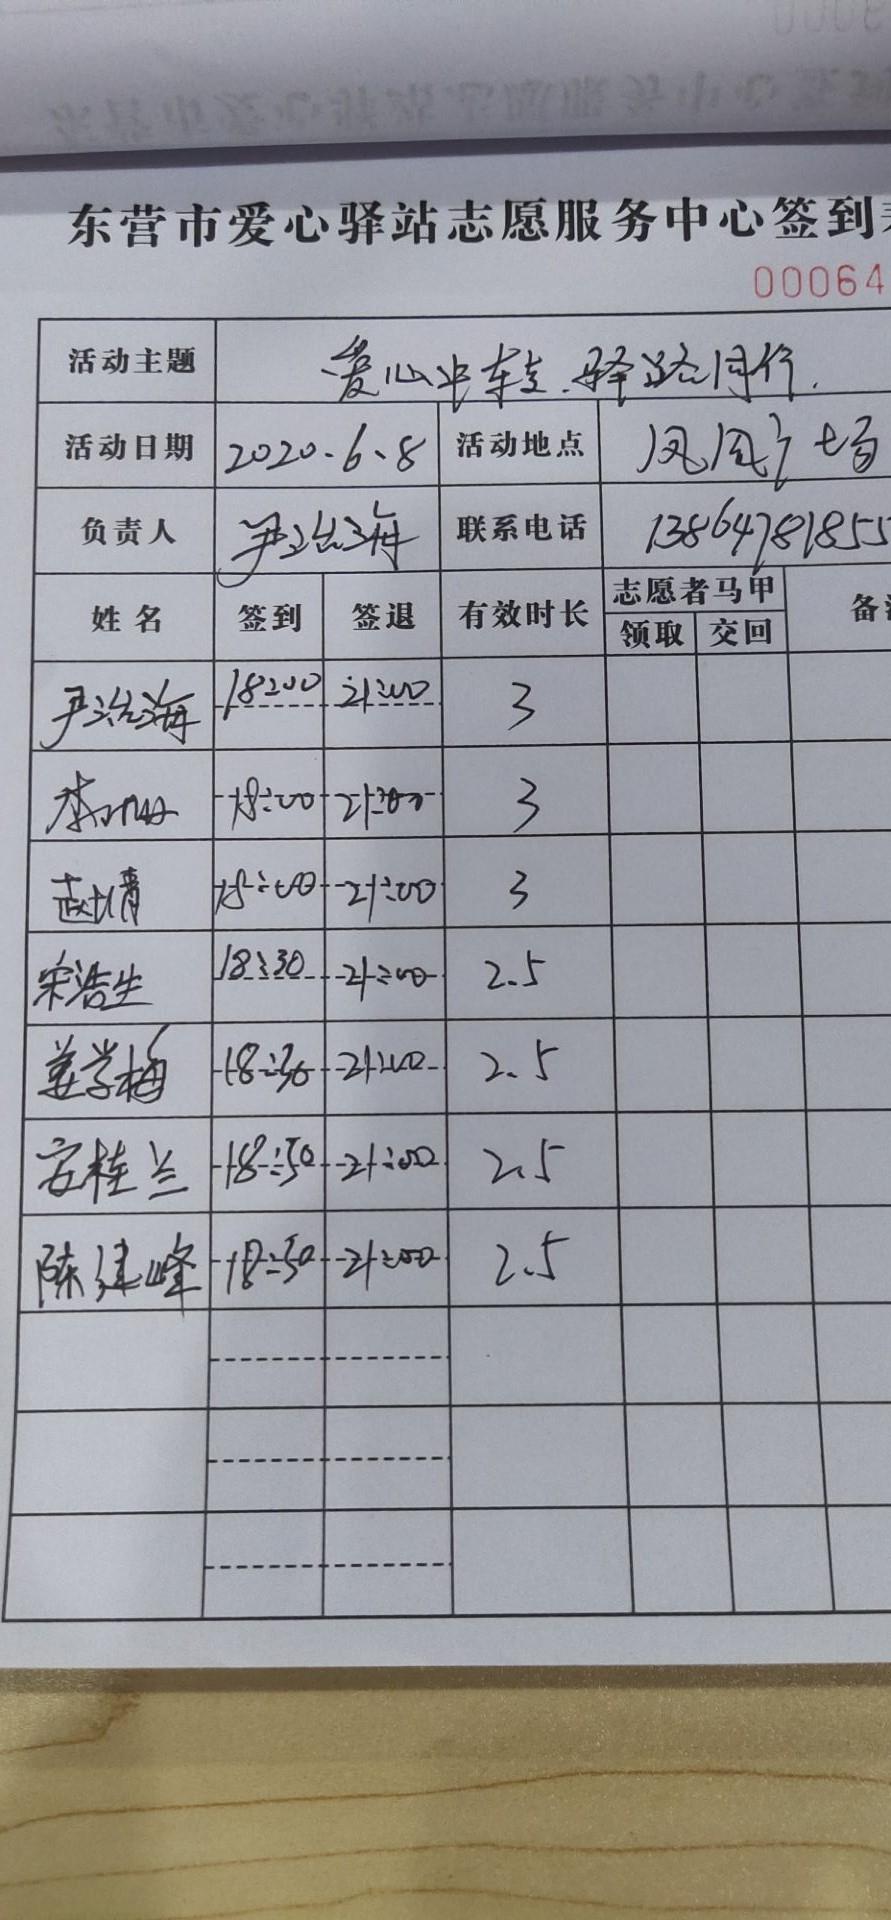 东营市爱心驿站志愿服务中心签到
00064
活动主题 爱心中转.驿路同行.
活动日期 2020.6.8 活动地点 凤凰广场
负责人 尹治海 联系电话 13864781855
姓名 签到 签退 有效时长 志愿者马甲 备
领取 交回
尹治海 18:00 21:00 3
18:00 21:00 3
赵婧 18:00 21:00 3
宋浩生 18:30 21:00 2.5
姜学梅 18:30 21:00 2.5
安桂兰 18:30 21:00 2.5
陈建峰 18:30 21:00 2.5